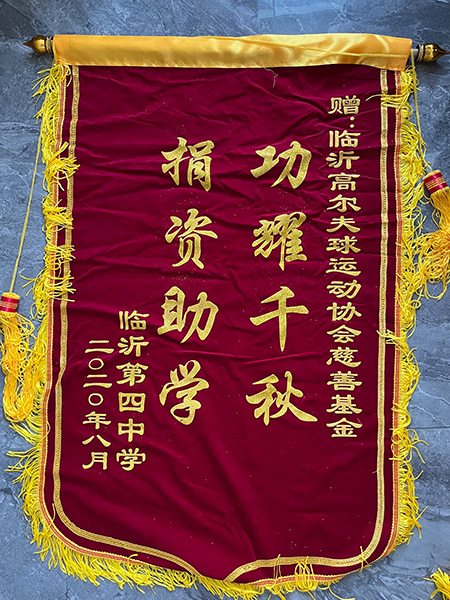 赠:临沂高尔夫球运动协会慈善基金
功耀千秋
捐资助学
临沂第四中学
二〇二〇年八月